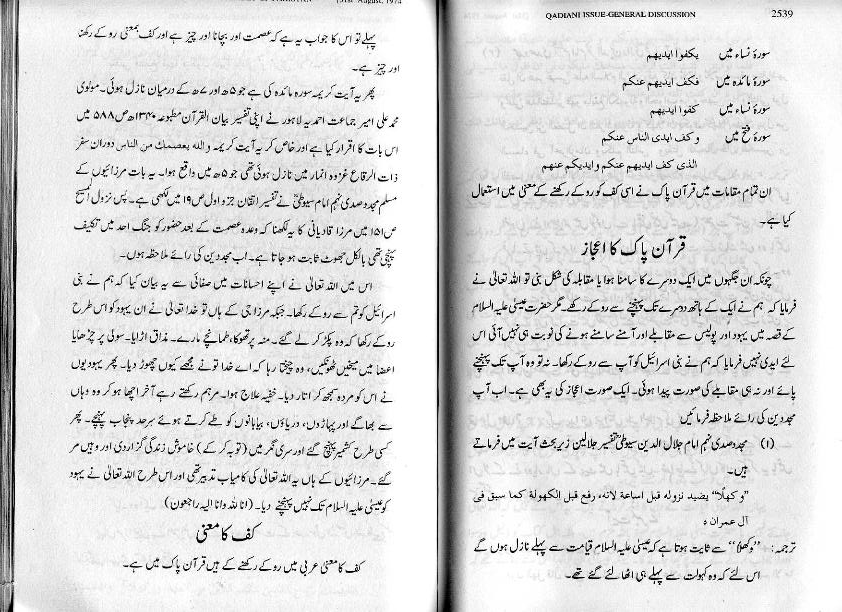 [31st August, 1974
پہلے تو اس کا جواب یہ ہے کہ عصمت اور بچانا اور چیز ہے اور کف بمعنی روکے رکھنا
اور چیز ہے۔
پھر یہ آیت کریمہ سورہ مائدہ کی ہے جو ۵ھ اور ۷ھ کے درمیان نازل ہوئی۔ مولوی
محمد علی امیر جماعت احمدیہ لاہور نے اپنی تفسیر بیان القرآن مطبوعہ ۱۳۴۰ھ ص ۵۸۸ میں
اس بات کا اقرار کیا ہے اور خاص کر یہ آیت کریمہ والله يعصمك من الناس دوران سفر
ذات الرقاع غزوہ انمار میں نازل ہوئی تھی جو ۵ھ میں واقع ہوا۔ یہ بات مرزائیوں کے
مسلم مجدد صدی نہم امام سیوطیؒ نے تفسیر اتقان جزو اول ص ۱۹ میں لکھی ہے۔ پس نزول المسیح
ص ۱۵۱ میں مرزا قادیانی کا یہ لکھنا کہ وعدہ عصمت کے بعد حضور کو جنگ احد میں تکلیف
پہنچی تھی بالکل جھوٹ ثابت ہو جاتا ہے۔ اب مجددین کی رائے ملاحظہ ہوں۔
اس میں اللہ تعالیٰ نے اپنے احسانات میں صفائی سے یہ بیان کیا کہ ہم نے بنی
اسرائیل کو تم سے روکے رکھا۔ جبکہ مرزا جی کے ہاں تو خدا تعالیٰ نے ان یہود کو اس طرح
روکے رکھا کہ وہ پکڑ کر لے گئے۔ منہ پر تھوکا، طمانچے مارے۔ مذاق اڑایا۔ سولی پر چڑھایا
اعضا میں میخیں ٹھونکیں، وہ چیختا رہا کہ اے خدا تو نے مجھے کیوں چھوڑ دیا۔ پھر یہودیوں
نے اس کو مردہ سمجھ کر اتار دیا۔ خفیہ علاج ہوا۔ مرہم رکھتے رہے آخر اچھا ہو کر وہ وہاں
سے بھاگے اور پہاڑوں، دریاؤں، بیابانوں کو طے کرتے ہوئے سرحد پنجاب پہنچے۔ پھر
کسی طرح کشمیر پہنچ گئے اور سری نگر میں (توبہ کر کے) خاموش زندگی گزار دی اور وہیں مر
گئے۔ مرزائیوں کے ہاں یہ اللہ تعالیٰ کی کامیاب تدبیر تھی اور اس طرح اللہ تعالیٰ نے یہود
کو عیسیٰ علیہ السلام تک نہیں پہنچنے دیا۔ (انا للہ وانا الیہ راجعون)
کف کا معنی
کف کا معنی عربی میں روکے رکھنے کے ہیں قرآن پاک میں ہے۔
QADIANI ISSUE-GENERAL DISCUSSION 2539
سورۂ نساء میں یکفوا ایدیھم
سورۂ مائدہ میں فکف ایدیھم عنکم
سورۂ نساء میں کفوا ایدیھم
سورۂ فتح میں و کف ایدی الناس عنکم
الذی کف ایدیھم عنکم وایدیکم عنھم
ان تمام مقامات میں قرآن پاک نے اسی کف کو روکے رکھنے کے معنی میں استعمال
کیا ہے۔
قرآن پاک کا اعجاز
چونکہ ان جگہوں میں ایک دوسرے کا سامنا ہوا یا مقابلہ کی شکل بنی تو اللہ تعالیٰ نے
فرمایا کہ ہم نے ایک کے ہاتھ دوسرے تک پہنچنے سے روکے رکھے۔ مگر حضرت عیسیٰ علیہ السلام
کے قصہ میں یہود اور پولیس سے مقابلے اور آمنے سامنے ہونے کی نوبت ہی نہیں آئی اس
لئے ایدی نہیں فرمایا کہ ہم نے بنی اسرائیل کو آپ سے روکے رکھا۔ نہ تو وہ آپ تک پہنچنے
پائے اور نہ ہی مقابلے کی صورت پیدا ہوئی۔ ایک صورت اعجاز کی یہ بھی ہے۔ اب آپ
مجددین کی رائے ملاحظہ فرمائیں
(۱) مجدد صدی نہم امام جلال الدین سیوطیؒ تفسیر جلالین زیر بحث آیت میں فرماتے
ہیں۔
”وکھلًا“ یضید نزولہ قبل اساعۃ لانہ، رفع قبل الکھولۃ کما سبق فی
آل عمران ہ
ترجمہ: ”وکھلًا“ سے ثابت ہوتا ہے کہ عیسیٰ علیہ السلام قیامت سے پہلے نازل ہوں گے
اس لئے کہ وہ کہولت سے پہلے ہی اٹھا لئے گئے تھے۔